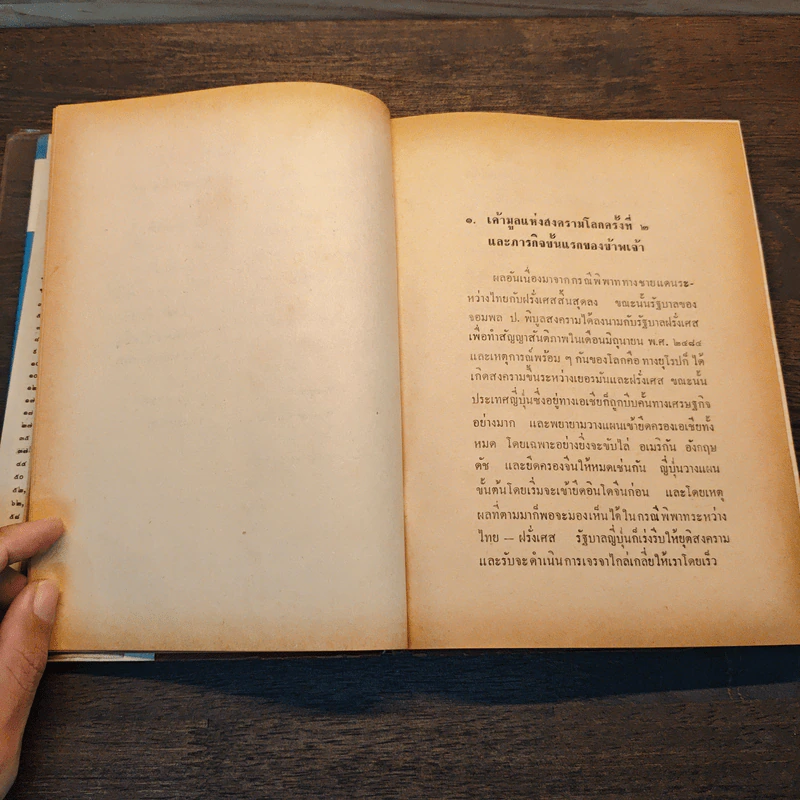 ๑. เค้ามูลแห่งสงครามโลกครั้งที่ ๒
และภารกิจขั้นแรกของข้าพเจ้า
ผลอันเนื่องมาจากกรณีพิพาททางชายแดนระ-
หว่างไทยกับฝรั่งเศสสิ้นสุดลง ขณะนั้นรัฐบาลของ
จอมพล ป. พิบูลสงครามได้ลงนามกับรัฐบาลฝรั่งเศส
เพื่อทำสัญญาสันติภาพในเดือนมิถุนายน พ.ศ. ๒๔๘๔
และเหตุการณ์พร้อม ๆ กันของโลกคือ ทางยุโรปก็ ได้
เกิดสงครามขึ้นระหว่างเยอรมันและฝรั่งเศส ขณะนั้น
ประเทศญี่ปุ่นซึ่งอยู่ทางเอเซียก็ถูกบีบคั้นทางเศรษฐกิจ
อย่างมาก และพยายามวางแผนเข้ายึดครองเอเซียทั้ง
หมด โดยเฉพาะอย่างยิ่งจะขับไล่ อเมริกัน อังกฤษ
ดัช และยึดครองจีนให้หมดเช่นกัน ญี่ปุ่นวางแผน
ขั้นต้นโดยเริ่มจะเข้ายึดอินโดจีนก่อน และโดยเหตุ
ผลที่ตามมาก็พอจะมองเห็นได้ในกรณีพิพาทระหว่าง
ไทย — ฝรั่งเศส รัฐบาลญี่ปุ่นก็เร่งรีบให้ยุติสงคราม
และรับจะดำเนินการเจรจาไกล่เกลี่ยให้เราโดยเร็ว
๑๐
๑๐
๑๒
๑๗
๑๘
๒๘
๓๕
๓๘
๔๔
๕๐
๕๒,
๖๒,
๕๘